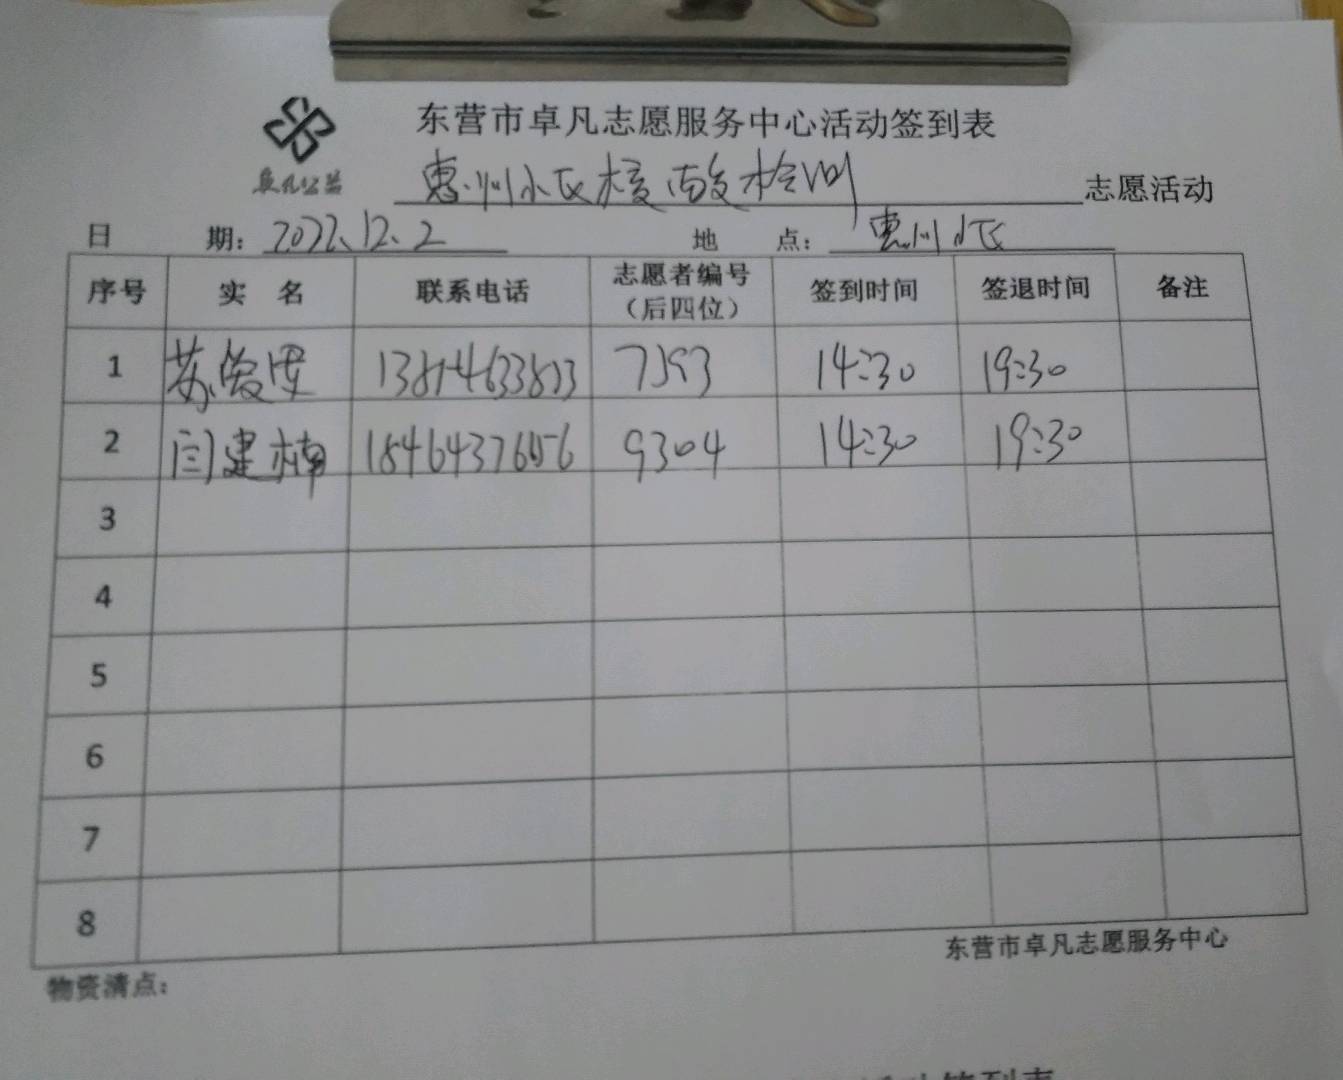 东营市卓凡志愿服务中心活动签到表
卓凡公益
惠州小区核酸检测 志愿活动
日 期: 2022.12.2 地 点: 惠州小区
序号 实 名 联系电话 志愿者编号(后四位) 签到时间 签退时间 备注
1 苏 14:30 19:30
2 闫建楠 9304 14:30 19:30
3
4
5
6
7
8
东营市卓凡志愿服务中心
物资清点: